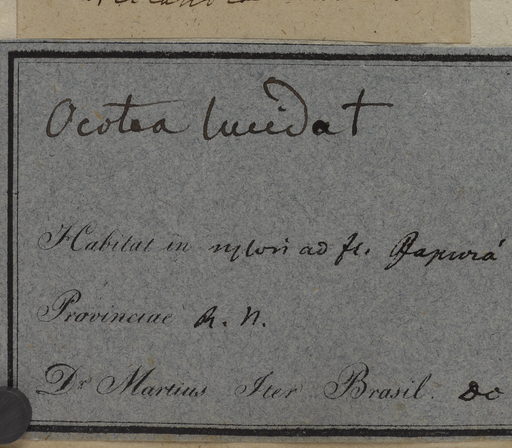 Ocotea lucida †
Habitat in sylvis ad fl. Japurá
Provinciae R. N.
Dr Martius Iter Brasil.